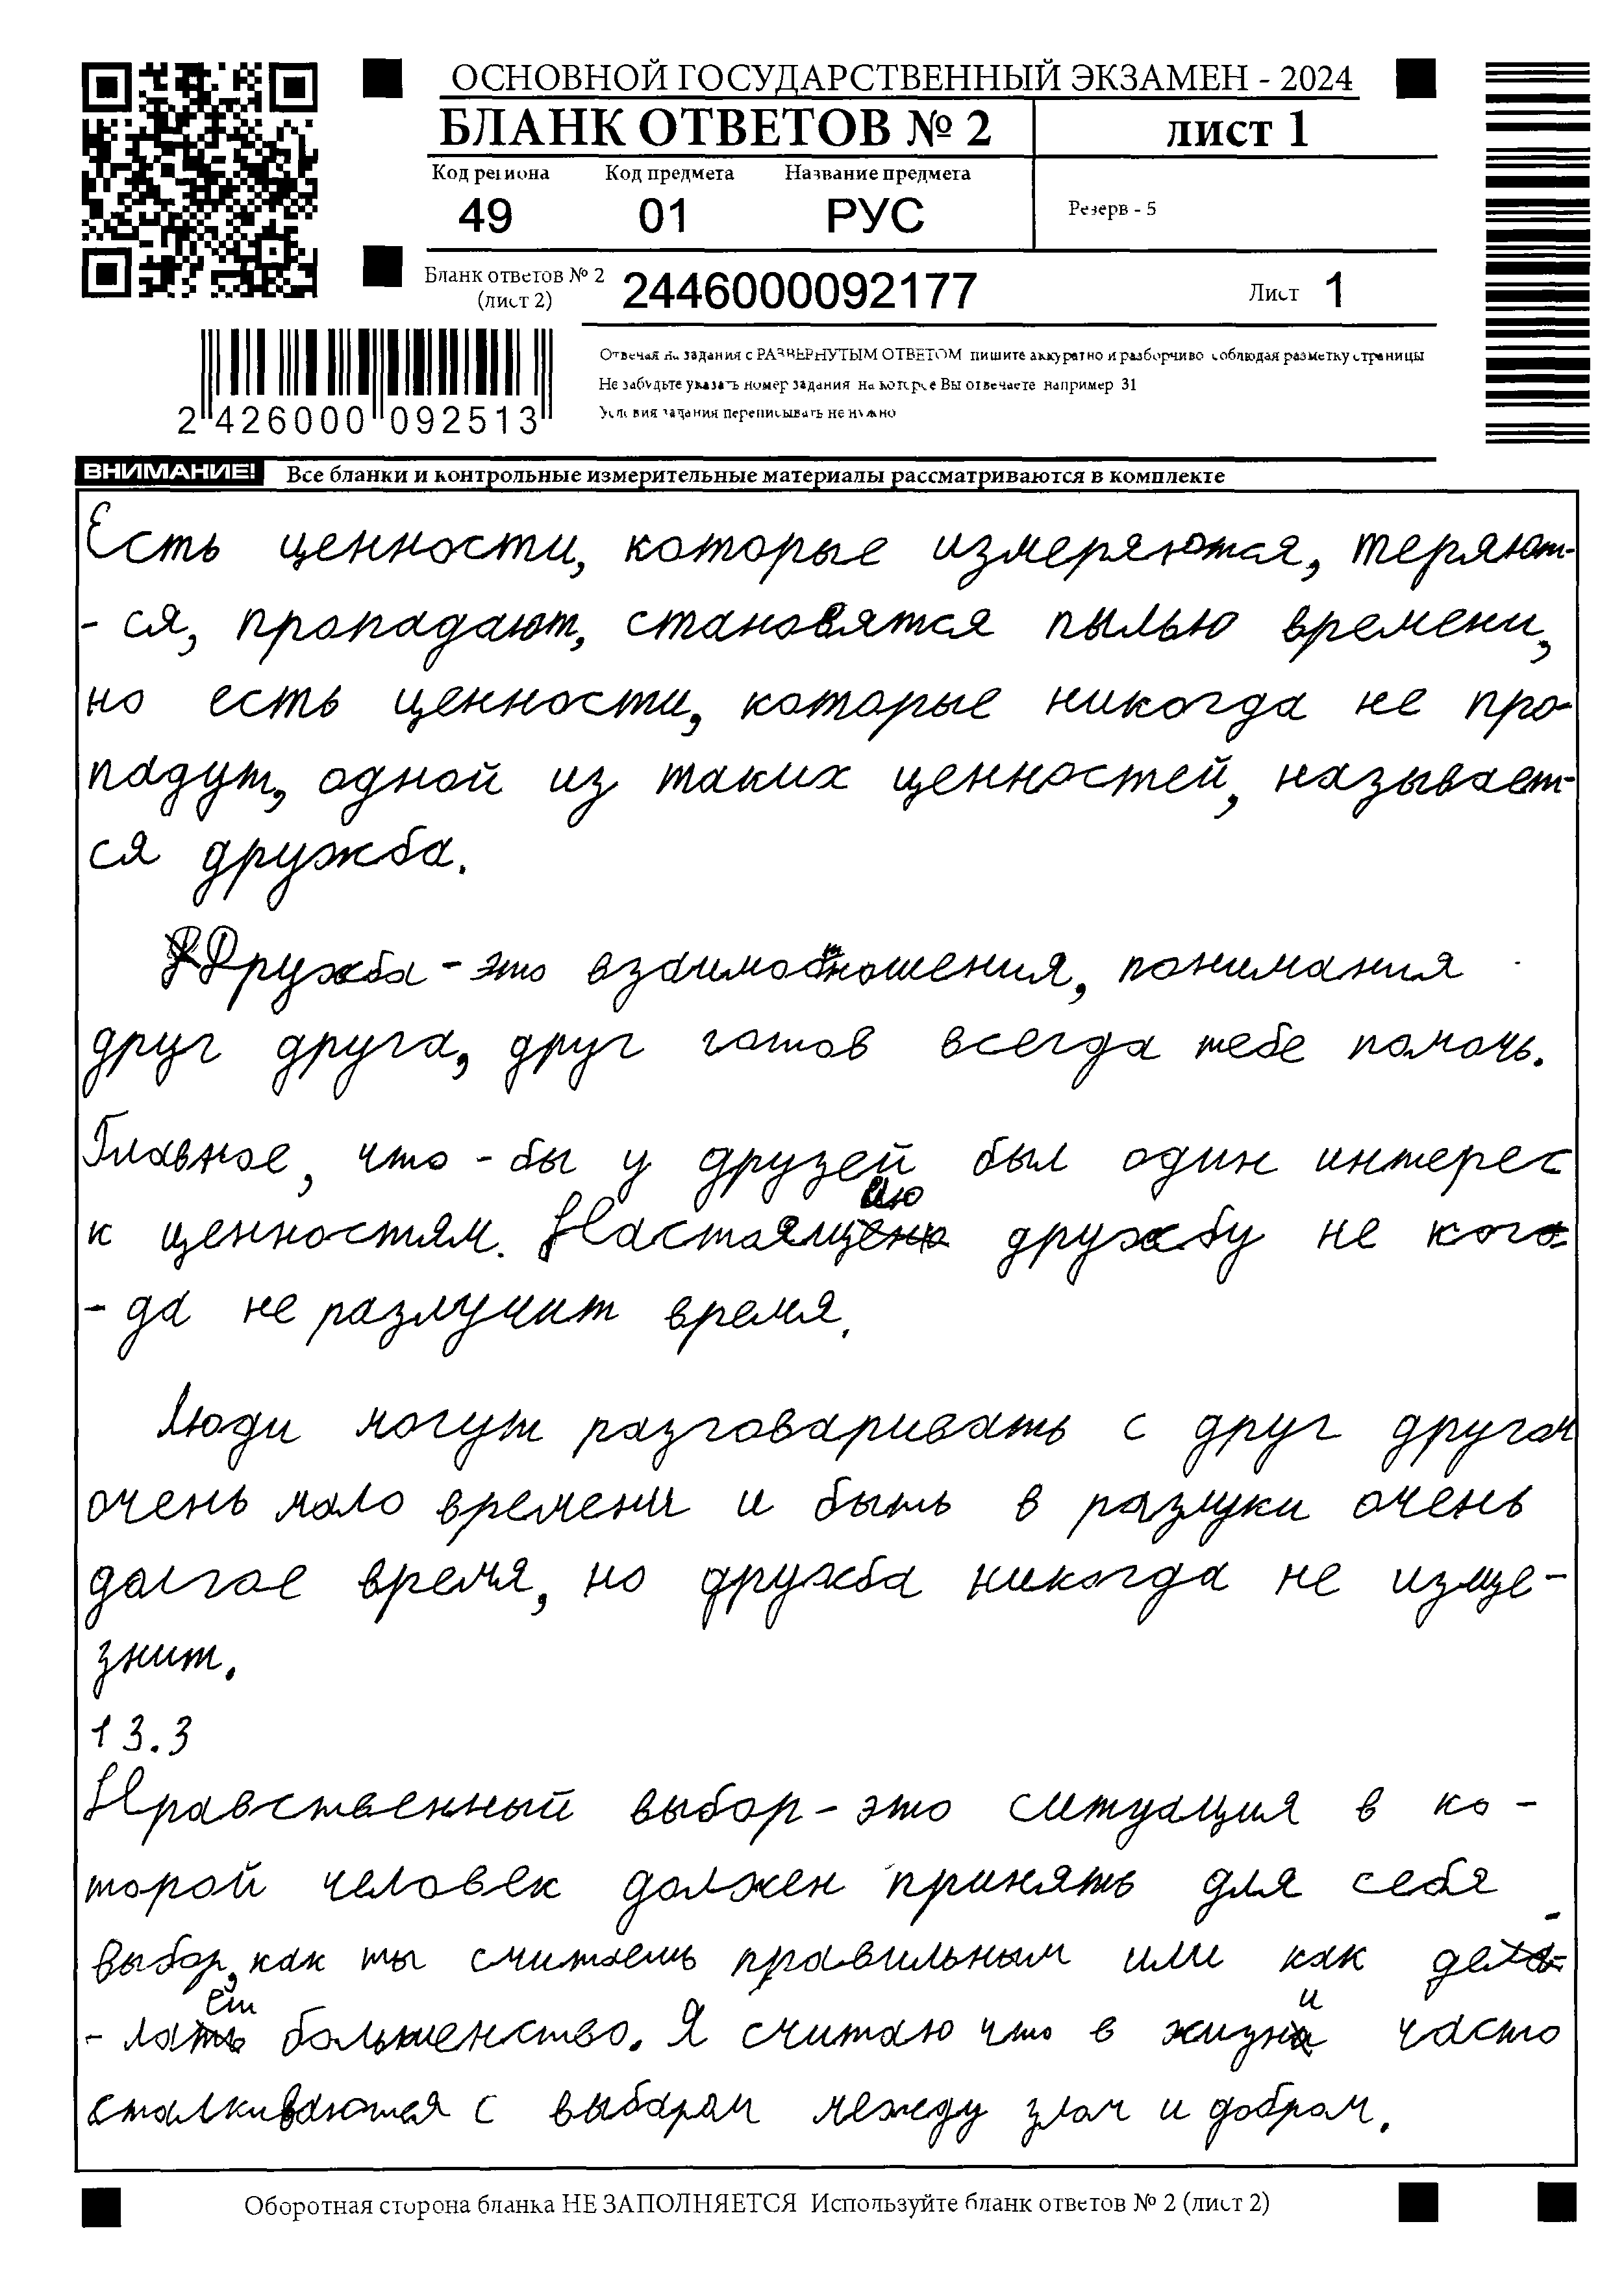 ОСНОВНОЙ ГОСУДАРСТВЕННЫЙ ЭКЗАМЕН - 2024
БЛАНК ОТВЕТОВ № 2
лист 1
Код региона Код предмета Название предмета
49 01 РУС
Резерв - 5
Бланк ответов № 2
(лист 2)
2446000092177
Лист 1
2 426000 092513
Отвечая на задания с РАЗВЕРНУТЫМ ОТВЕТОМ пишите аккуратно и разборчиво соблюдая разметку страницы
Не забудьте указать номер задания на которое Вы отвечаете например 31
Условия задания переписывать не нужно
ВНИМАНИЕ! Все бланки и контрольные измерительные материалы рассматриваются в комплекте
Есть ценности, которые измеряются, теряют-
- ся, пропадают, становятся пылью времени,
но есть ценности, которые никогда не про-
падут, одной из таких ценностей, называет-
ся дружба.
Дружба - это взаимоотношения, понимания
друг друга, друг готов всегда тебе помочь.
Главное, что - бы у друзей был один интерес
к ценностям. Настоящию дружбу не ког
- да не разлучит время.
Люди могут разговаривать с друг другом
очень мало времени и быть в разлуки очень
долгое время, но дружба никогда не изще-
знит.
13.3
Нравственный выбор - это ситуация в ко -
торой человек должен принять для себя
выбор, как ты считаешь правильным или как де-
- лает больженство. Я считаю что в жизни часто
сталкиваются с выбаром между злом и добром.
Оборотная сторона бланка НЕ ЗАПОЛНЯЕТСЯ Используйте бланк ответов № 2 (лист 2)